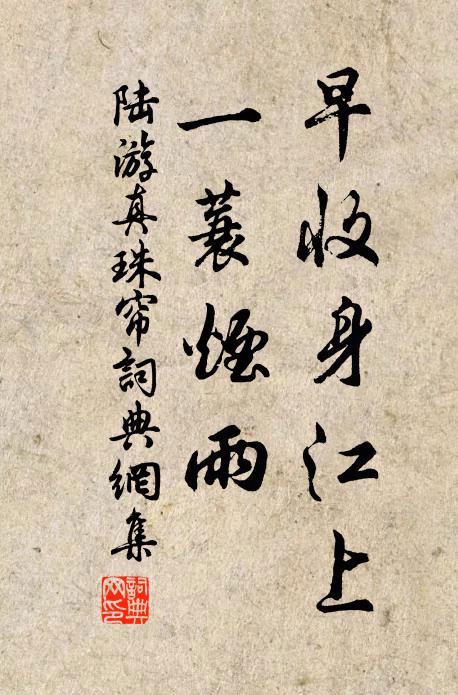 早收身江上
一蓑煙雨
陆游真珠帘詞典網集
詞典网印